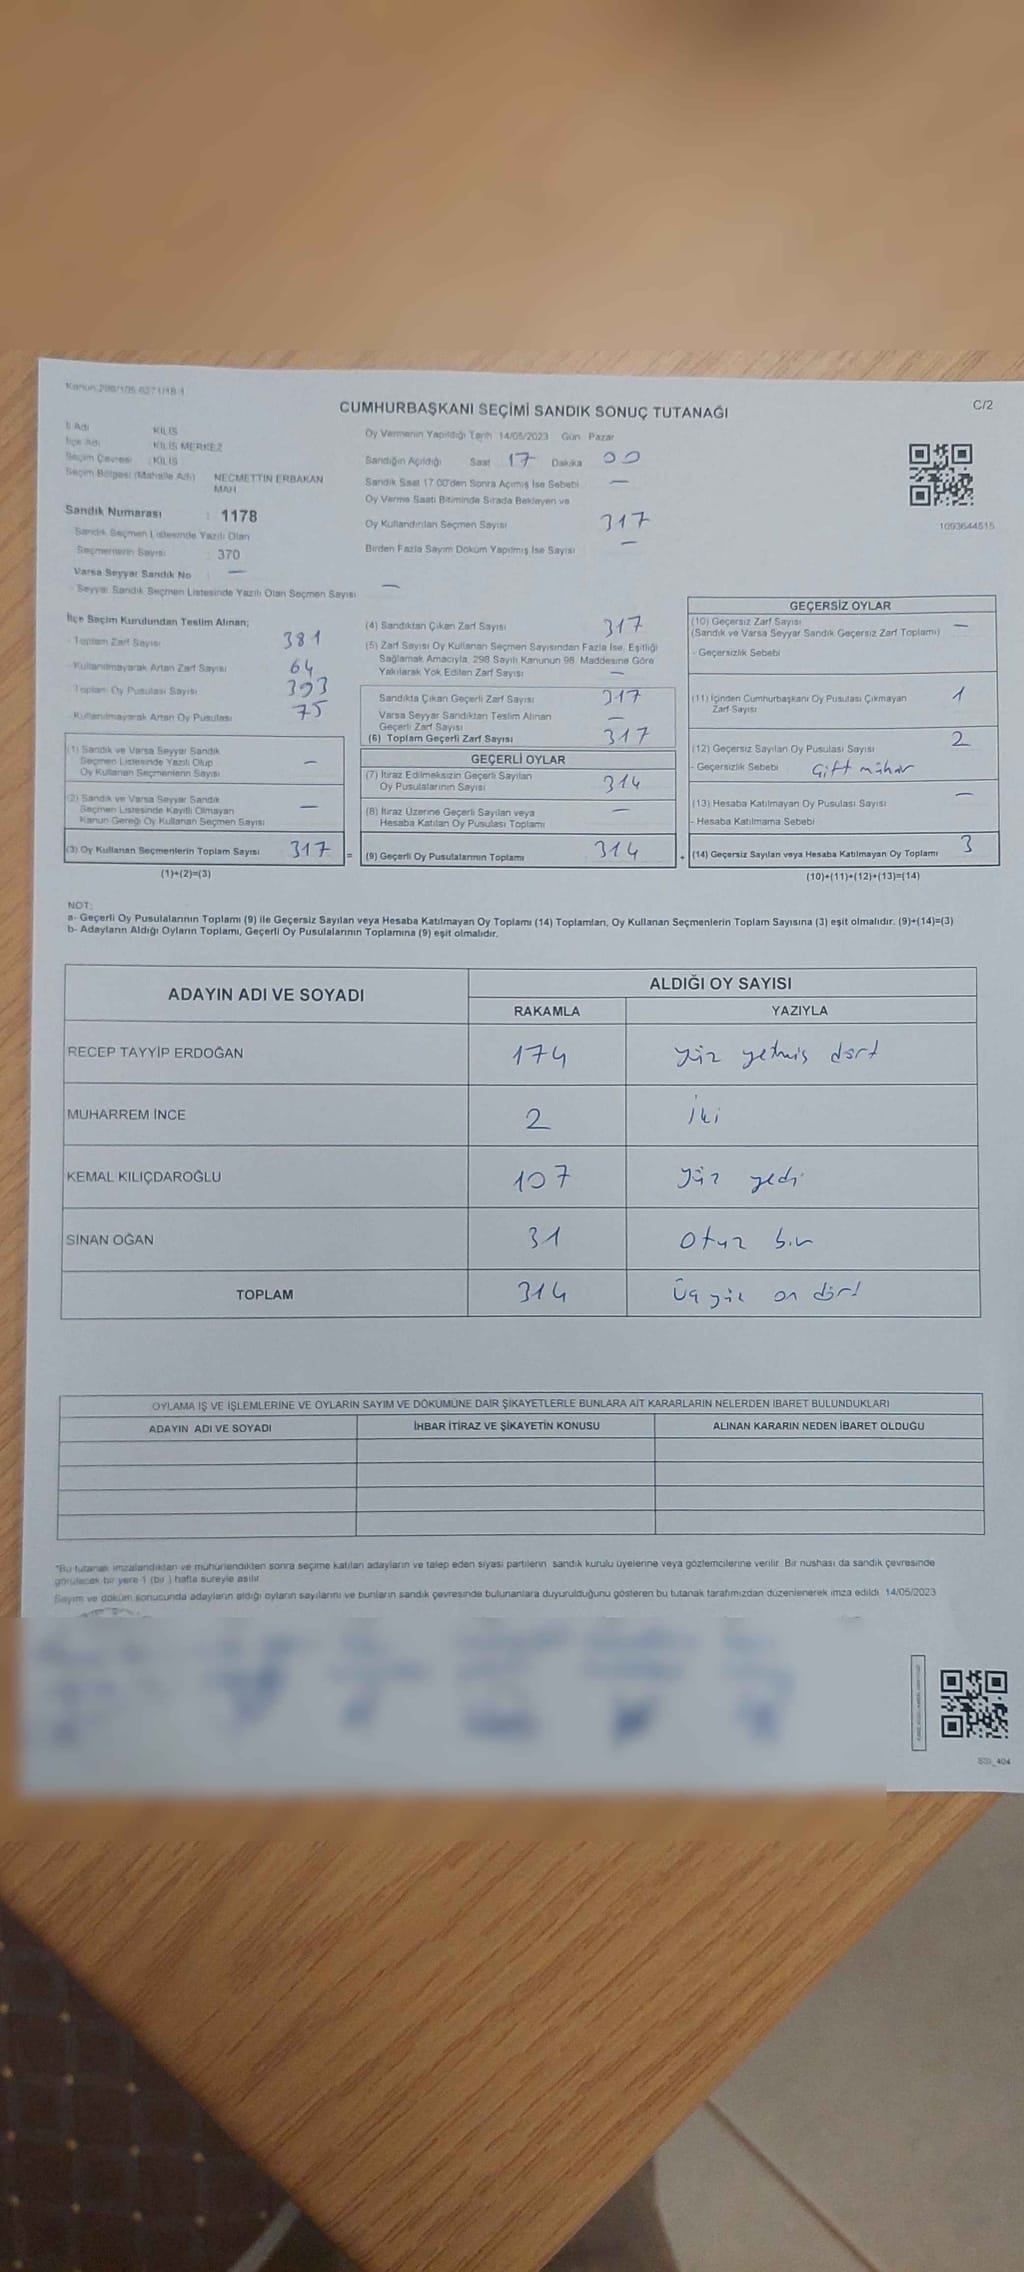 CUMHURBAŞKANI SEÇİMİ SANDIK SONUÇ TUTANAĞI
C/2
İl Adı : KİLİS
İlçe Adı : KİLİS MERKEZ
Seçim Çevresi : KİLİS
Seçim Bölgesi (Mahalle Adı) NECMETTİN ERBAKAN MAH
Sandık Numarası : 1178
Sandık Seçmen Listesinde Yazılı Olan
Seçmenlerin Sayısı : 370
Varsa Seyyar Sandık No —
- Seyyar Sandık Seçmen Listesinde Yazılı Olan Seçmen Sayısı —
Oy Vermenin Yapıldığı Tarih 14/05/2023 Gün Pazar
Sandığın Açıldığı Saat 17 Dakika 00
Sandık Saat 17.00'den Sonra Açımış İse Sebebi —
Oy Verme Saati Bitiminde Sırada Bekleyen ve
Oy Kullandırılan Seçmen Sayısı 317
Birden Fazla Sayım Döküm Yapılmış İse Sayısı —
1093644515
İlçe Seçim Kurulundan Teslim Alınan;
- Toplam Zarf Sayısı 381
- Kullanılmayarak Artan Zarf Sayısı 64
- Toplam Oy Pusulası Sayısı 393
- Kullanılmayarak Artan Oy Pusulası 75
(1) Sandık ve Varsa Seyyar Sandık
Seçmen Listesinde Yazılı Olup
Oy Kullanan Seçmenlerin Sayısı —
(2) Sandık ve Varsa Seyyar Sandık
Seçmen Listesinde Kayıtlı Olmayan
Kanun Gereği Oy Kullanan Seçmen Sayısı —
(3) Oy Kullanan Seçmenlerin Toplam Sayısı 317 =
(1)+(2)=(3)
(4) Sandıktan Çıkan Zarf Sayısı 317
(5) Zarf Sayısı Oy Kullanan Seçmen Sayısından Fazla İse, Eşitliği
Sağlamak Amacıyla, 298 Sayılı Kanunun 98. Maddesine Göre
Yakılarak Yok Edilen Zarf Sayısı —
Sandıkta Çıkan Geçerli Zarf Sayısı 317
Varsa Seyyar Sandıktan Teslim Alınan
Geçerli Zarf Sayısı —
(6) Toplam Geçerli Zarf Sayısı 317
GEÇERLİ OYLAR
(7) İtiraz Edilmeksizin Geçerli Sayılan
Oy Pusulalarının Sayısı 314
(8) İtiraz Üzerine Geçerli Sayılan veya
Hesaba Katılan Oy Pusulası Toplamı —
(9) Geçerli Oy Pusulalarının Toplamı 314 +
GEÇERSİZ OYLAR
(10) Geçersiz Zarf Sayısı —
(Sandık ve Varsa Seyyar Sandık Geçersiz Zarf Toplamı)
- Geçersizlik Sebebi
(11) İçinden Cumhurbaşkanı Oy Pusulası Çıkmayan
Zarf Sayısı 1
(12) Geçersiz Sayılan Oy Pusulası Sayısı 2
- Geçersizlik Sebebi Çift mühür
(13) Hesaba Katılmayan Oy Pusulası Sayısı —
- Hesaba Katılmama Sebebi
(14) Geçersiz Sayılan veya Hesaba Katılmayan Oy Toplamı 3
(10)+(11)+(12)+(13)=(14)
NOT:
a- Geçerli Oy Pusulalarının Toplamı (9) ile Geçersiz Sayılan veya Hesaba Katılmayan Oy Toplamı (14) Toplamları, Oy Kullanan Seçmenlerin Toplam Sayısına (3) eşit olmalıdır. (9)+(14)=(3)
b- Adayların Aldığı Oyların Toplamı, Geçerli Oy Pusulalarının Toplamına (9) eşit olmalıdır.
ADAYIN ADI VE SOYADI ALDIĞI OY SAYISI
RAKAMLA YAZIYLA
RECEP TAYYİP ERDOĞAN 174 yüz yetmiş dört
MUHARREM İNCE 2 iki
KEMAL KILIÇDAROĞLU 107 yüz yedi
SİNAN OĞAN 31 otuz bir
TOPLAM 314 Üç yüz on dört
OYLAMA İŞ VE İŞLEMLERİNE VE OYLARIN SAYIM VE DÖKÜMÜNE DAİR ŞİKAYETLERLE BUNLARA AİT KARARLARIN NELERDEN İBARET BULUNDUKLARI
ADAYIN ADI VE SOYADI İHBAR İTİRAZ VE ŞİKAYETİN KONUSU ALINAN KARARIN NEDEN İBARET OLDUĞU
*Bu tutanak imzalandıktan ve mühürlendikten sonra seçime katılan adayların ve talep eden siyasi partilerin sandık kurulu üyelerine veya gözlemcilerine verilir. Bir nüshası da sandık çevresinde
görülecek bir yere 1 (bir) hafta süreyle asılır.
Sayım ve döküm sonucunda adayların aldığı oyların sayılarını ve bunların sandık çevresinde bulunanlara duyurulduğunu gösteren bu tutanak tarafımızdan düzenlenerek imza edildi. 14/05/2023